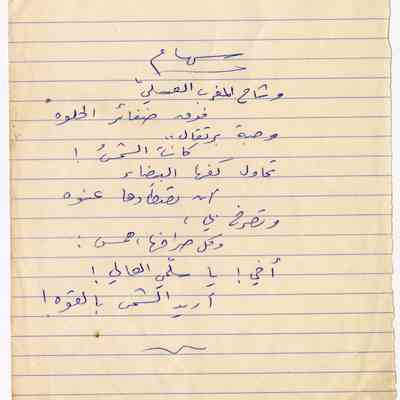 سهام
وشاح المغرب العسليّ
فوق ضفائر الحلوه
وحبة برتقال..
كانت الشمسُ!
تحاول كفها البيضاء
أن تصطادها عنوه
وتصرخ بي،
وكل صراخها، همس:
أخي! يا سلّمي العالي!
أريد الشمس بالقوه!